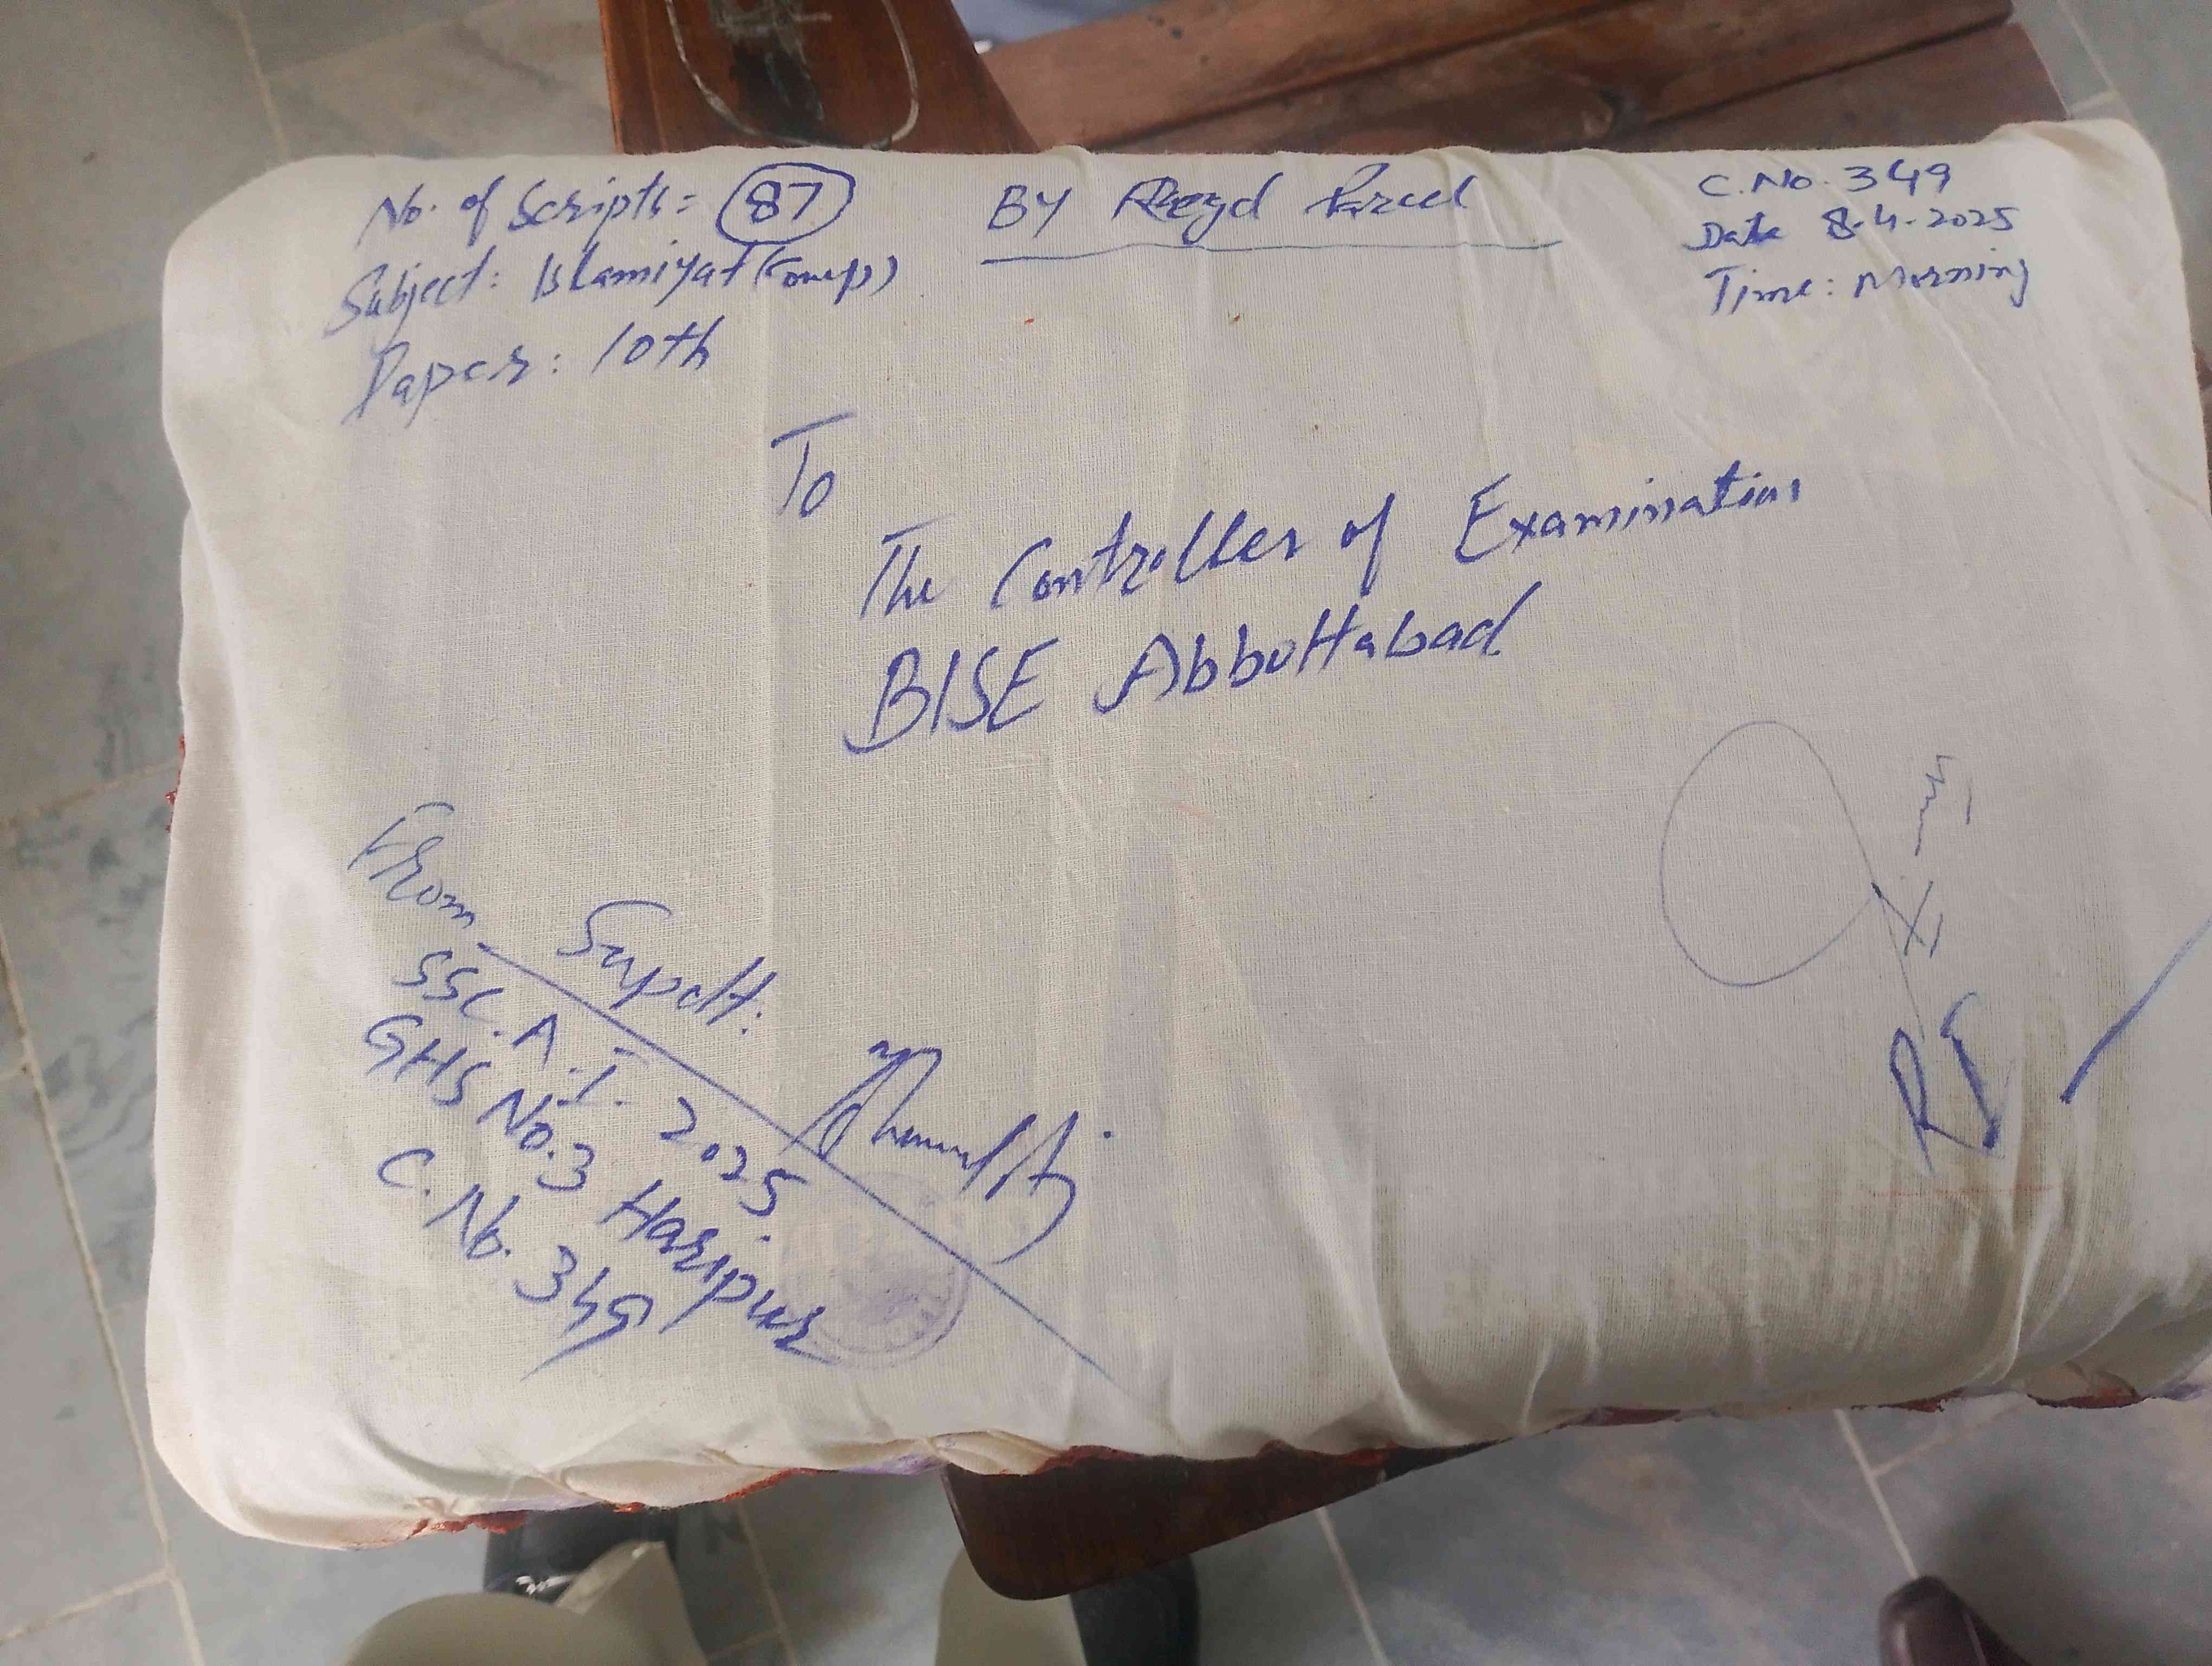 No. of Scripts: 87
Subject: Islamiyat (Comp)
Paper: 10th
BY Regd Parcel
C.No. 349
Date 8-4-2025
Time: Morning
To
The Controller of Examination
BISE Abbottabad
From
Supdtt:
SSC. A.I. 2025
GHS No.3 Haripur
C. No. 349